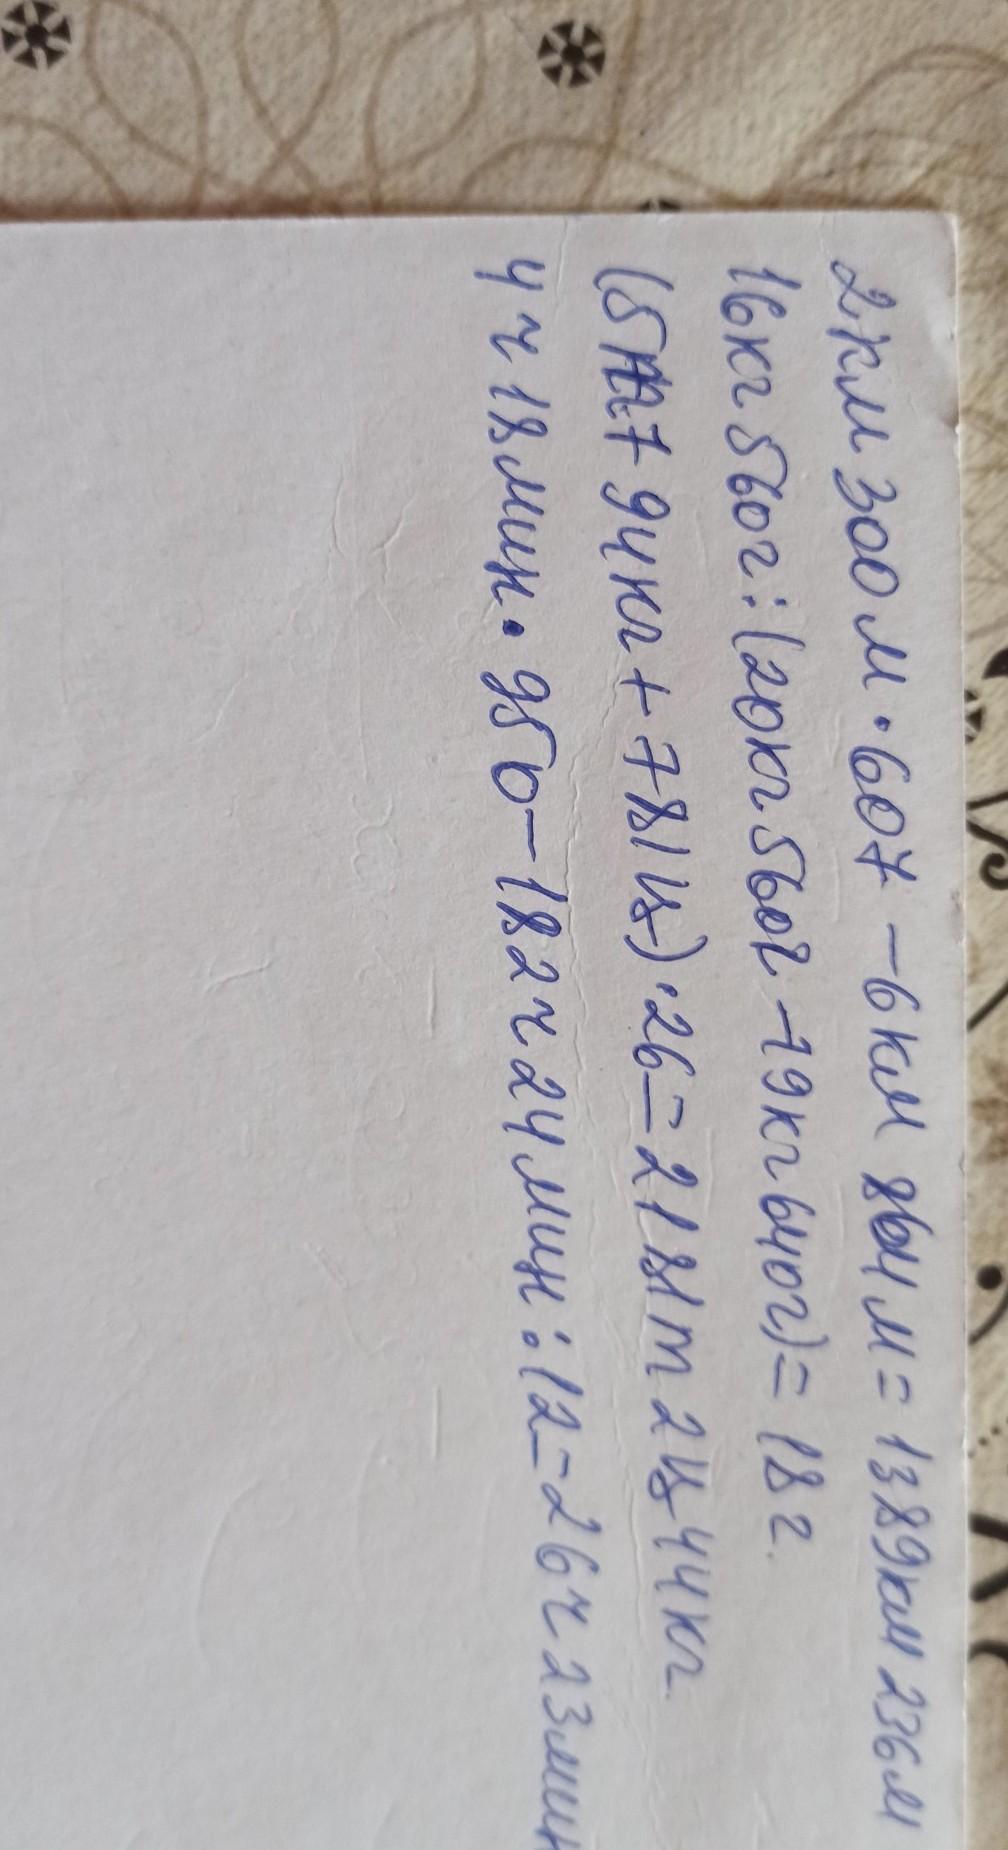 2км 300м · 607 - 6км 864м = 1389км 236м
16кг 560г : (20кг 560г - 19кг 640г) = 18г.
(5т 794кг + 781ц) · 26 = 2181т 2ц 44кг.
4ч 18мин · 950 - 182ч 24мин : 12 = 26ч 23мин